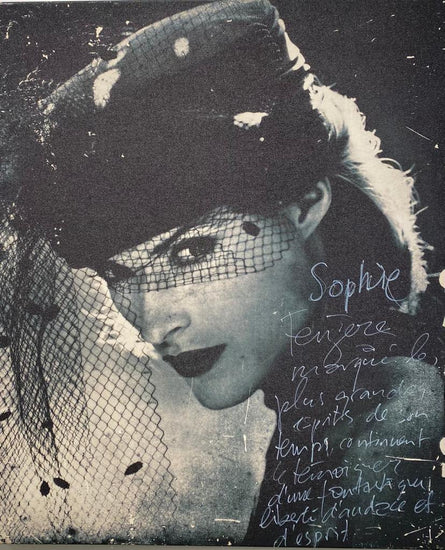 Sophie
marqué les
plus grands
esprits de son
temps, continuant
à témoigner
d'une fantastique
liberté d'audace et
d'esprit